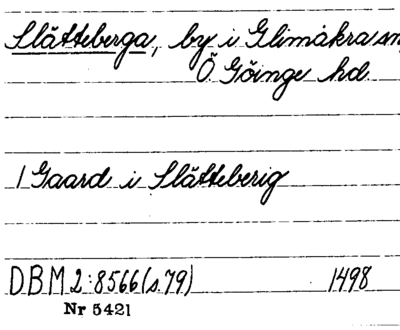 Slätteberga, by i Glimåkra sn,
Ö Göinge hd.
1 Gaard i Slätteberig
DBM 2:8566 (s. 79) 1498
Nr 5421